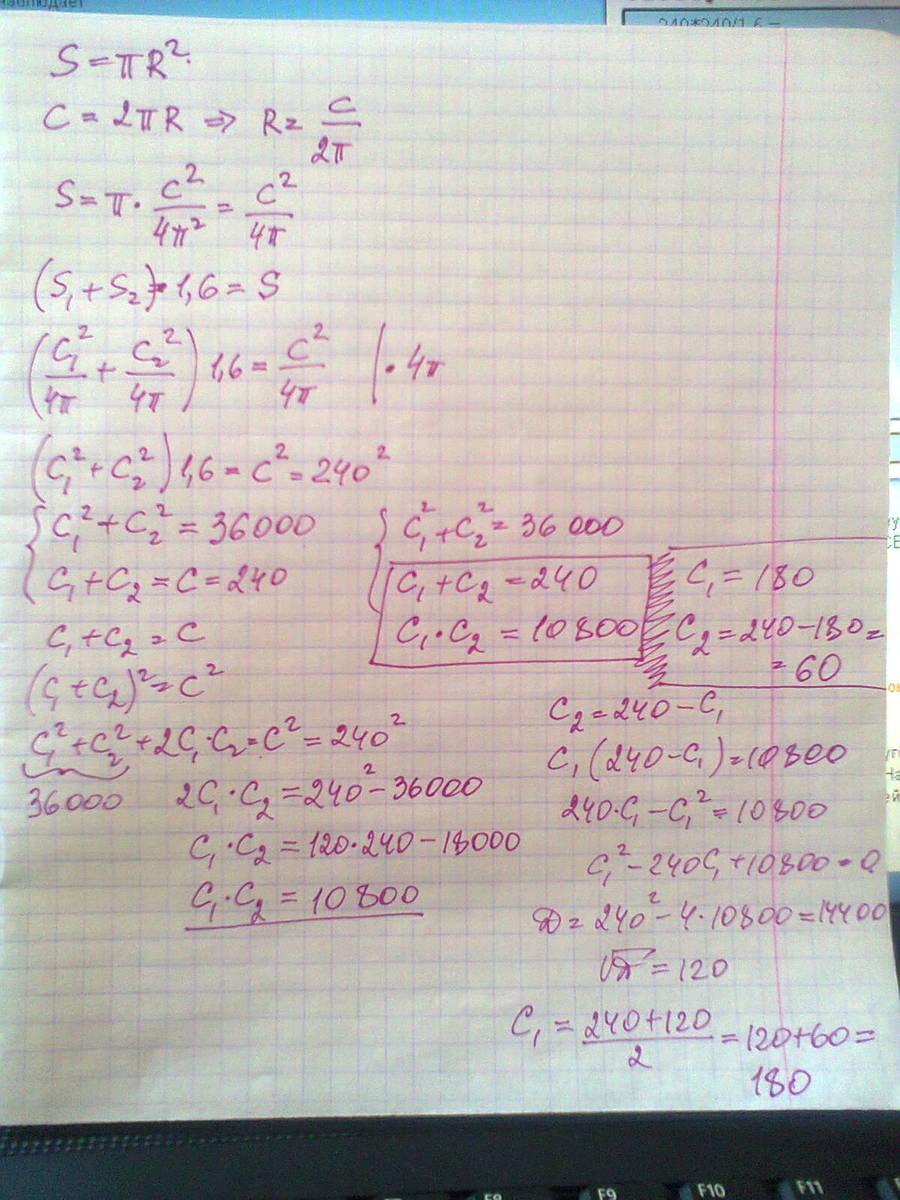 наблюдает
240*240/1,6 =
S = πR².
C = 2πR ⇒ R = C/2π
S = π · C²/4π² = C²/4π
(S₁ + S₂) · 1,6 = S
(C₁²/4π + C₂²/4π) 1,6 = C²/4π | · 4π
(C₁² + C₂²) 1,6 = C² = 240²
{ C₁² + C₂² = 36000
C₁ + C₂ = C = 240
C₁ + C₂ = C
(C₁ + C₂)² = C²
C₁² + C₂² + 2C₁·C₂ = C² = 240²
36000
2C₁·C₂ = 240² - 36000
C₁·C₂ = 120·240 - 18000
C₁·C₂ = 10800
{ C₁² + C₂² = 36 000
C₁ + C₂ = 240
C₁·C₂ = 10800
C₁ = 180
C₂ = 240 - 180 =
= 60
C₂ = 240 - C₁
C₁(240 - C₁) = 10800
240·C₁ - C₁² = 10800
C₁² - 240C₁ + 10800 = 0
D = 240² - 4·10800 = 14400
√D = 120
C₁ = (240+120)/2 = 120+60 =
180
F8 F9 F10 F11